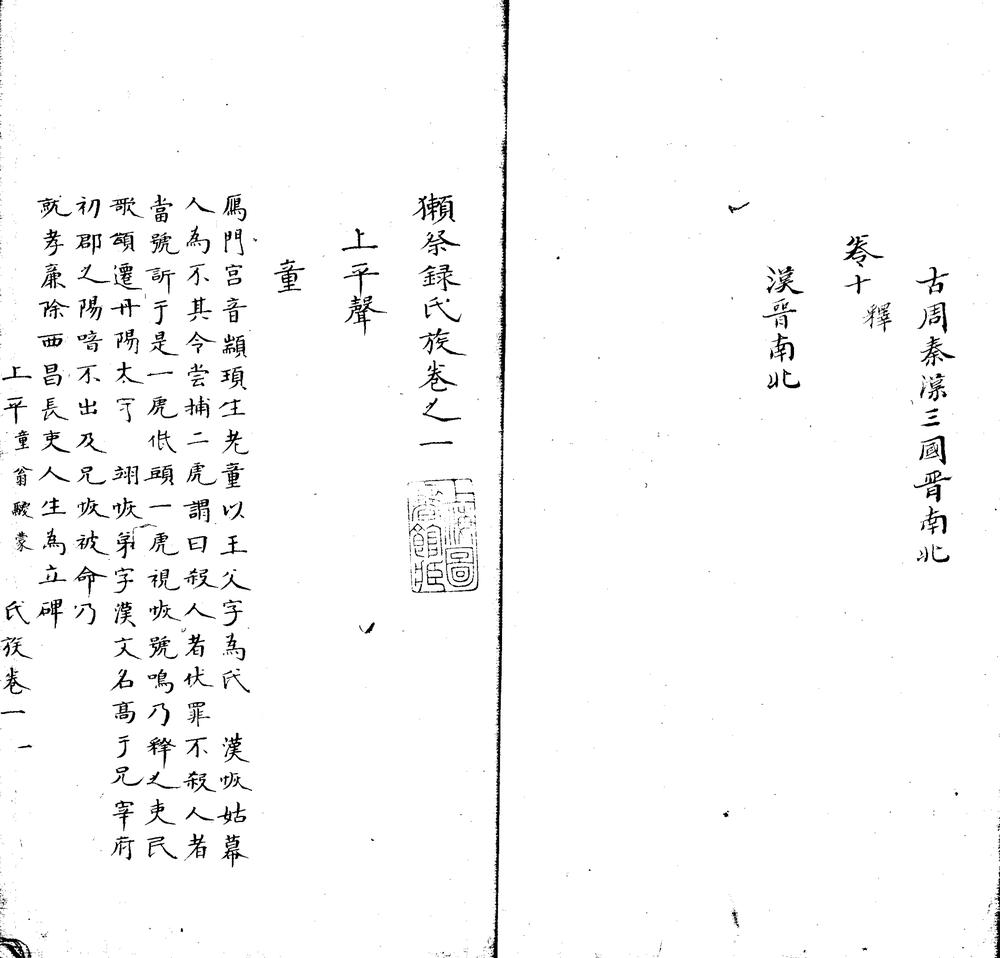 古周秦漢三國晋南北
卷十
釋
漢晋南北
獺祭録氏族卷之一
上海圖書館藏
上平聲
童
鴈門宫音顓頊生老童以王父字為氏　漢恢姑幕
人為不其令尝捕二虎謂曰殺人者伏罪不殺人者
當號訴于是一虎低頭一虎視恢號鳴乃釋之吏民
歌頌遷丹陽太守　翊恢弟字漢文名髙于兄宰府
初郡之陽喑不出及兄恢被命乃
就孝廉除西昌長吏人生為立碑
上平童翁 蒙　氏族卷一　一